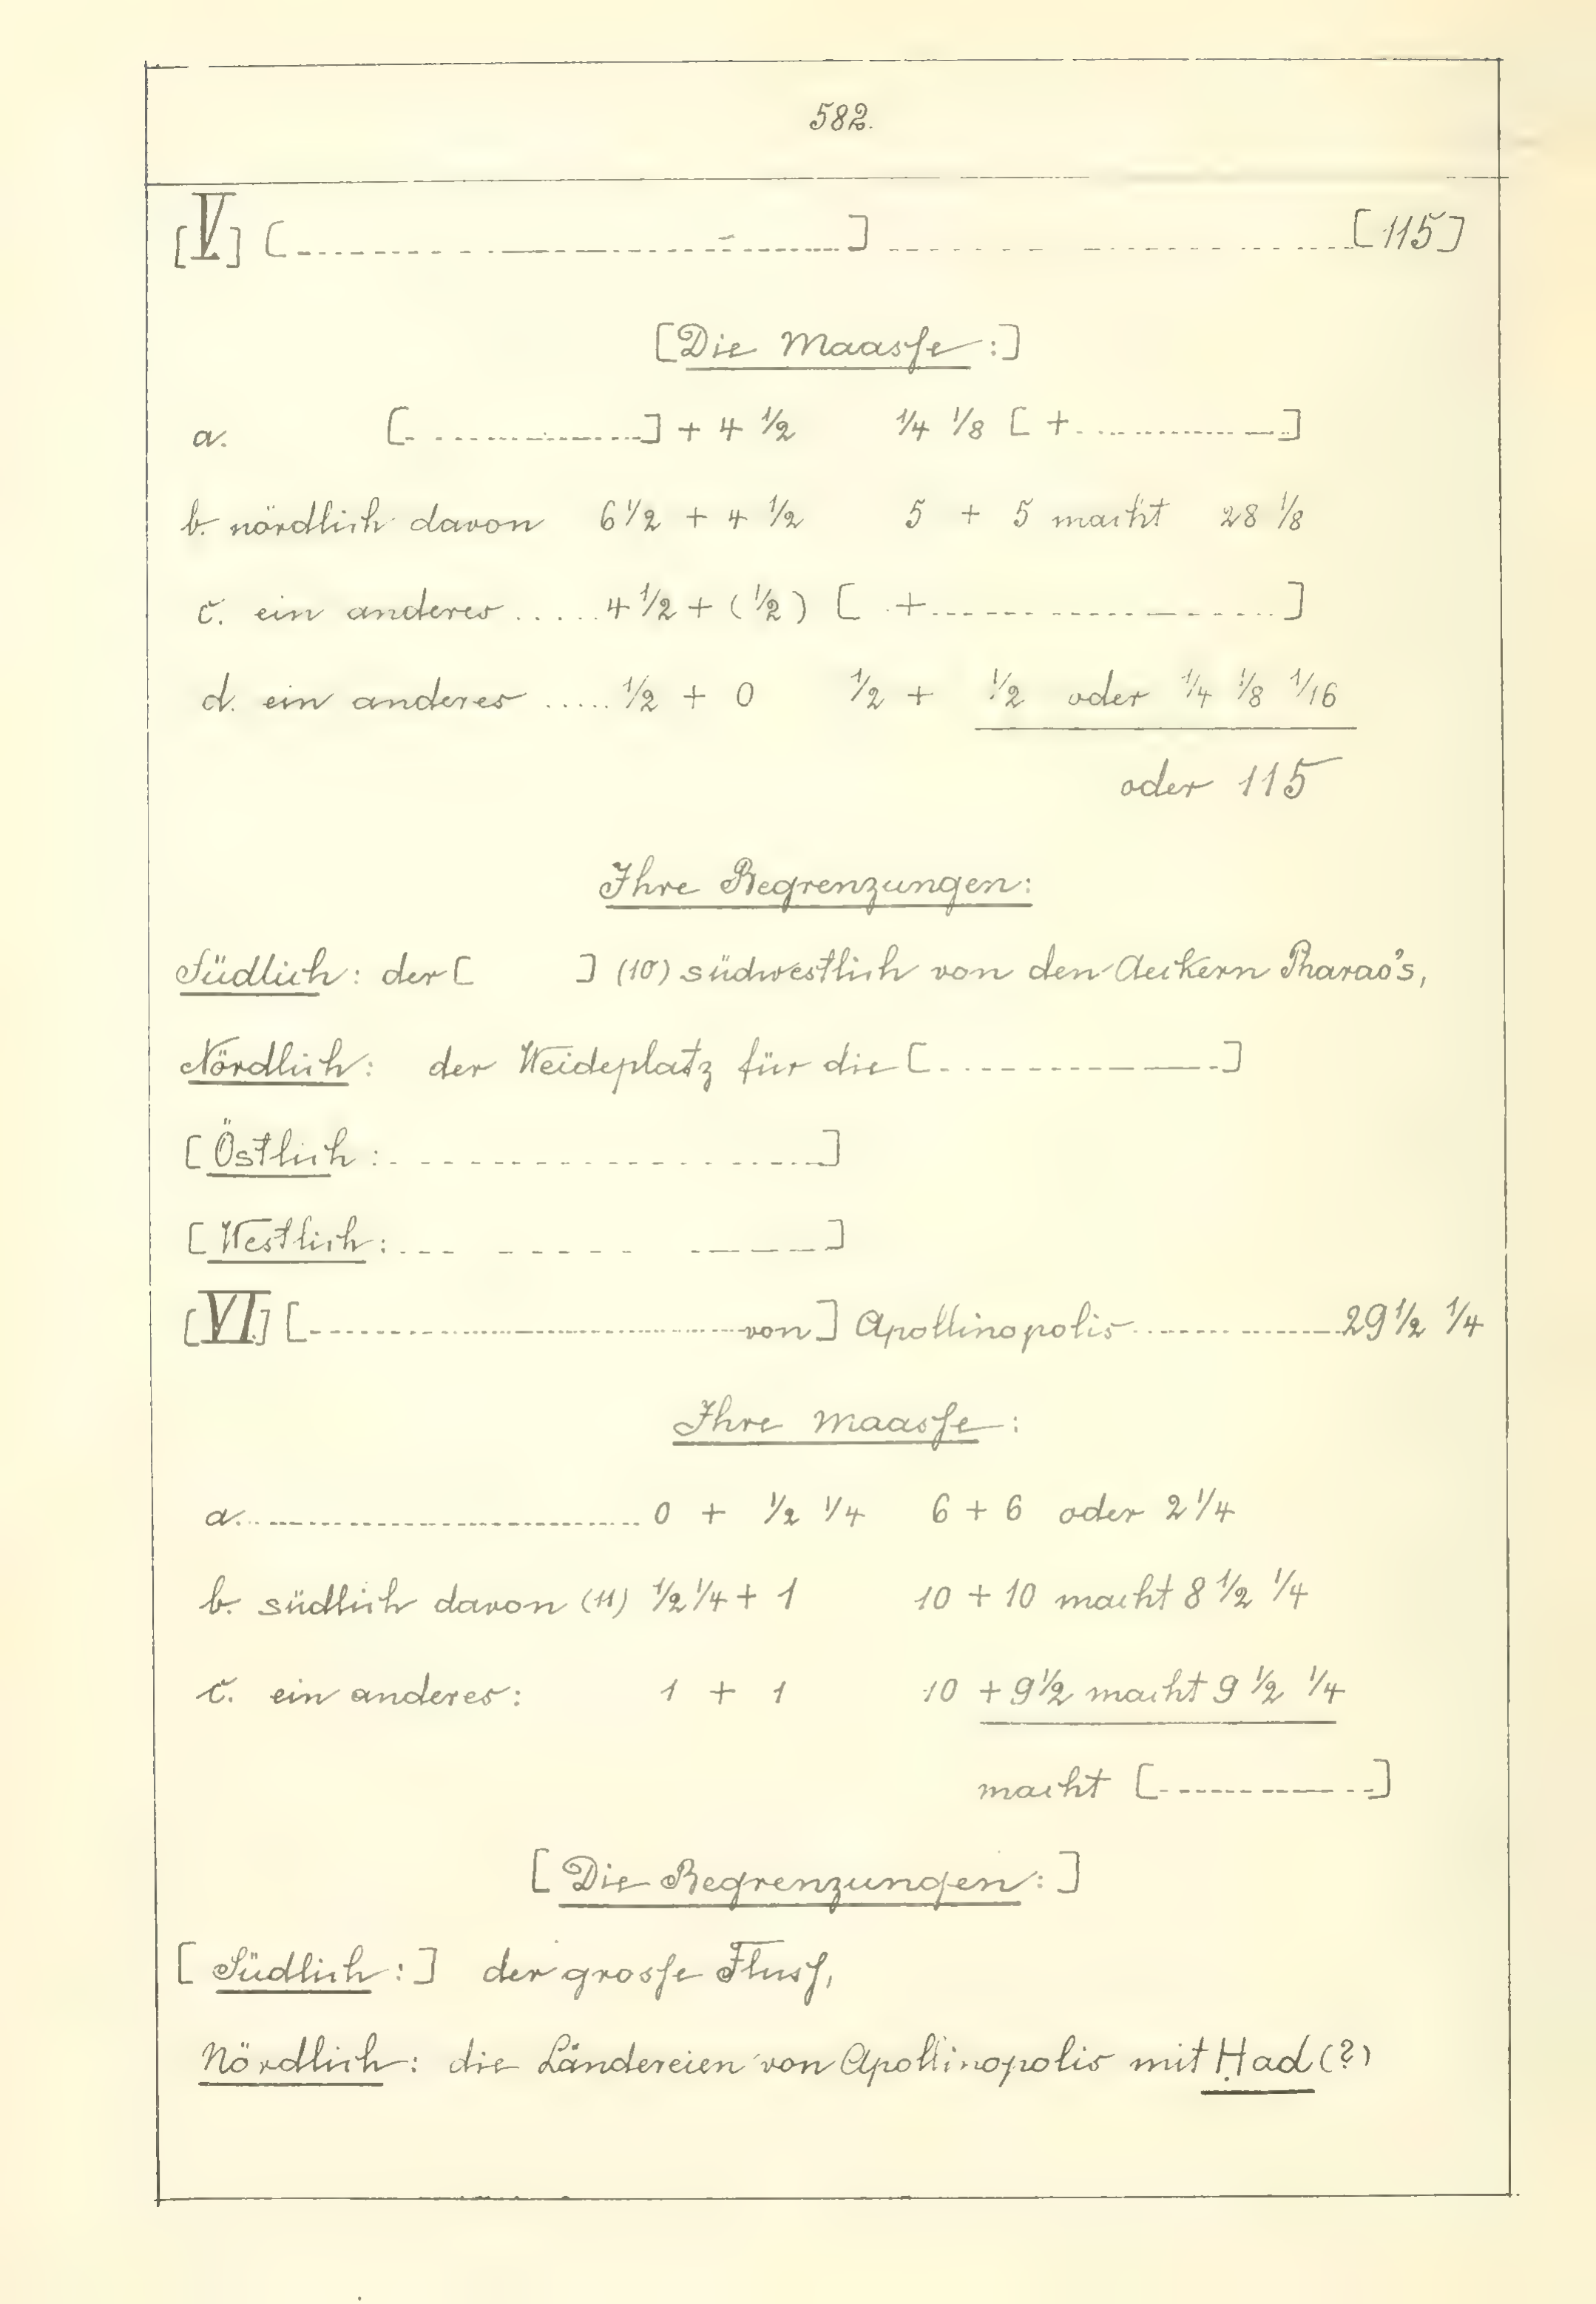 582.
[V] [..............................] .............................. [115]
[Die Maasse:]
a. [..................] + 4 1/2 1/4 1/8 [ + ..................]
b. nördlich davon 6 1/2 + 4 1/2 5 + 5 macht 28 1/8
c. ein anderes ..... 4 1/2 + (1/2) [ + ..................]
d. ein anderes ..... 1/2 + 0 1/2 + 1/2 oder 1/4 1/8 1/16
oder 115
Ihre Begrenzungen:
Südlich: der [ ] (10) südwestlich von den Aeckern Pharao's,
Nördlich: der Weideplatz für die [..................]
[Östlich: ..............................]
[Westlich: ..............................]
[VI] [.............................. von] Apollinopolis .................. 29 1/2 1/4
Ihre Maasse:
a. .............................. 0 + 1/2 1/4 6 + 6 oder 2 1/4
b. südlich davon (11) 1/2 1/4 + 1 10 + 10 macht 8 1/2 1/4
c. ein anderes: 1 + 1 10 + 9 1/2 macht 9 1/2 1/4
macht [..................]
[Die Begrenzungen:]
[Südlich:] der grosse Fluss,
Nördlich: die Ländereien von Apollinopolis mit Ḥad (?)